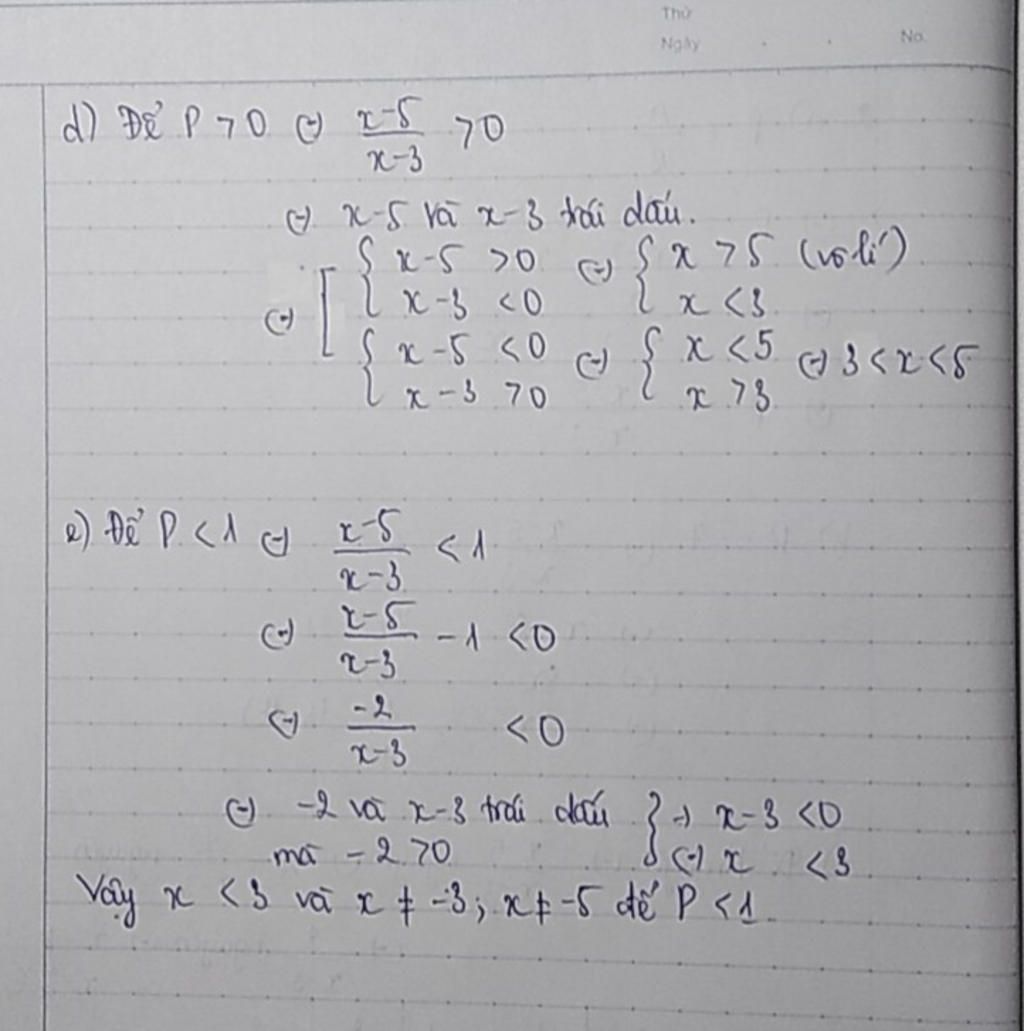 Thứ
Ngày . . No.
d) Để P > 0 (-) x-5/x-3 > 0
(-) x-5 và x-3 trái dấu.
(-) [ { x-5 > 0 (-) { x > 5 (vô lí)
x-3 < 0 x < 3
{ x-5 < 0 (-) { x < 5 (-) 3 < x < 5
x-3 > 0 x > 3
e) Để P < 1 (-) x-5/x-3 < 1
(-) x-5/x-3 - 1 < 0
(-) -2/x-3 < 0
(-) -2 và x-3 trái dấu } -) x-3 < 0
mà -2 > 0 (-) x < 3
Vậy x < 3 và x ≠ -3; x ≠ -5 để P < 1